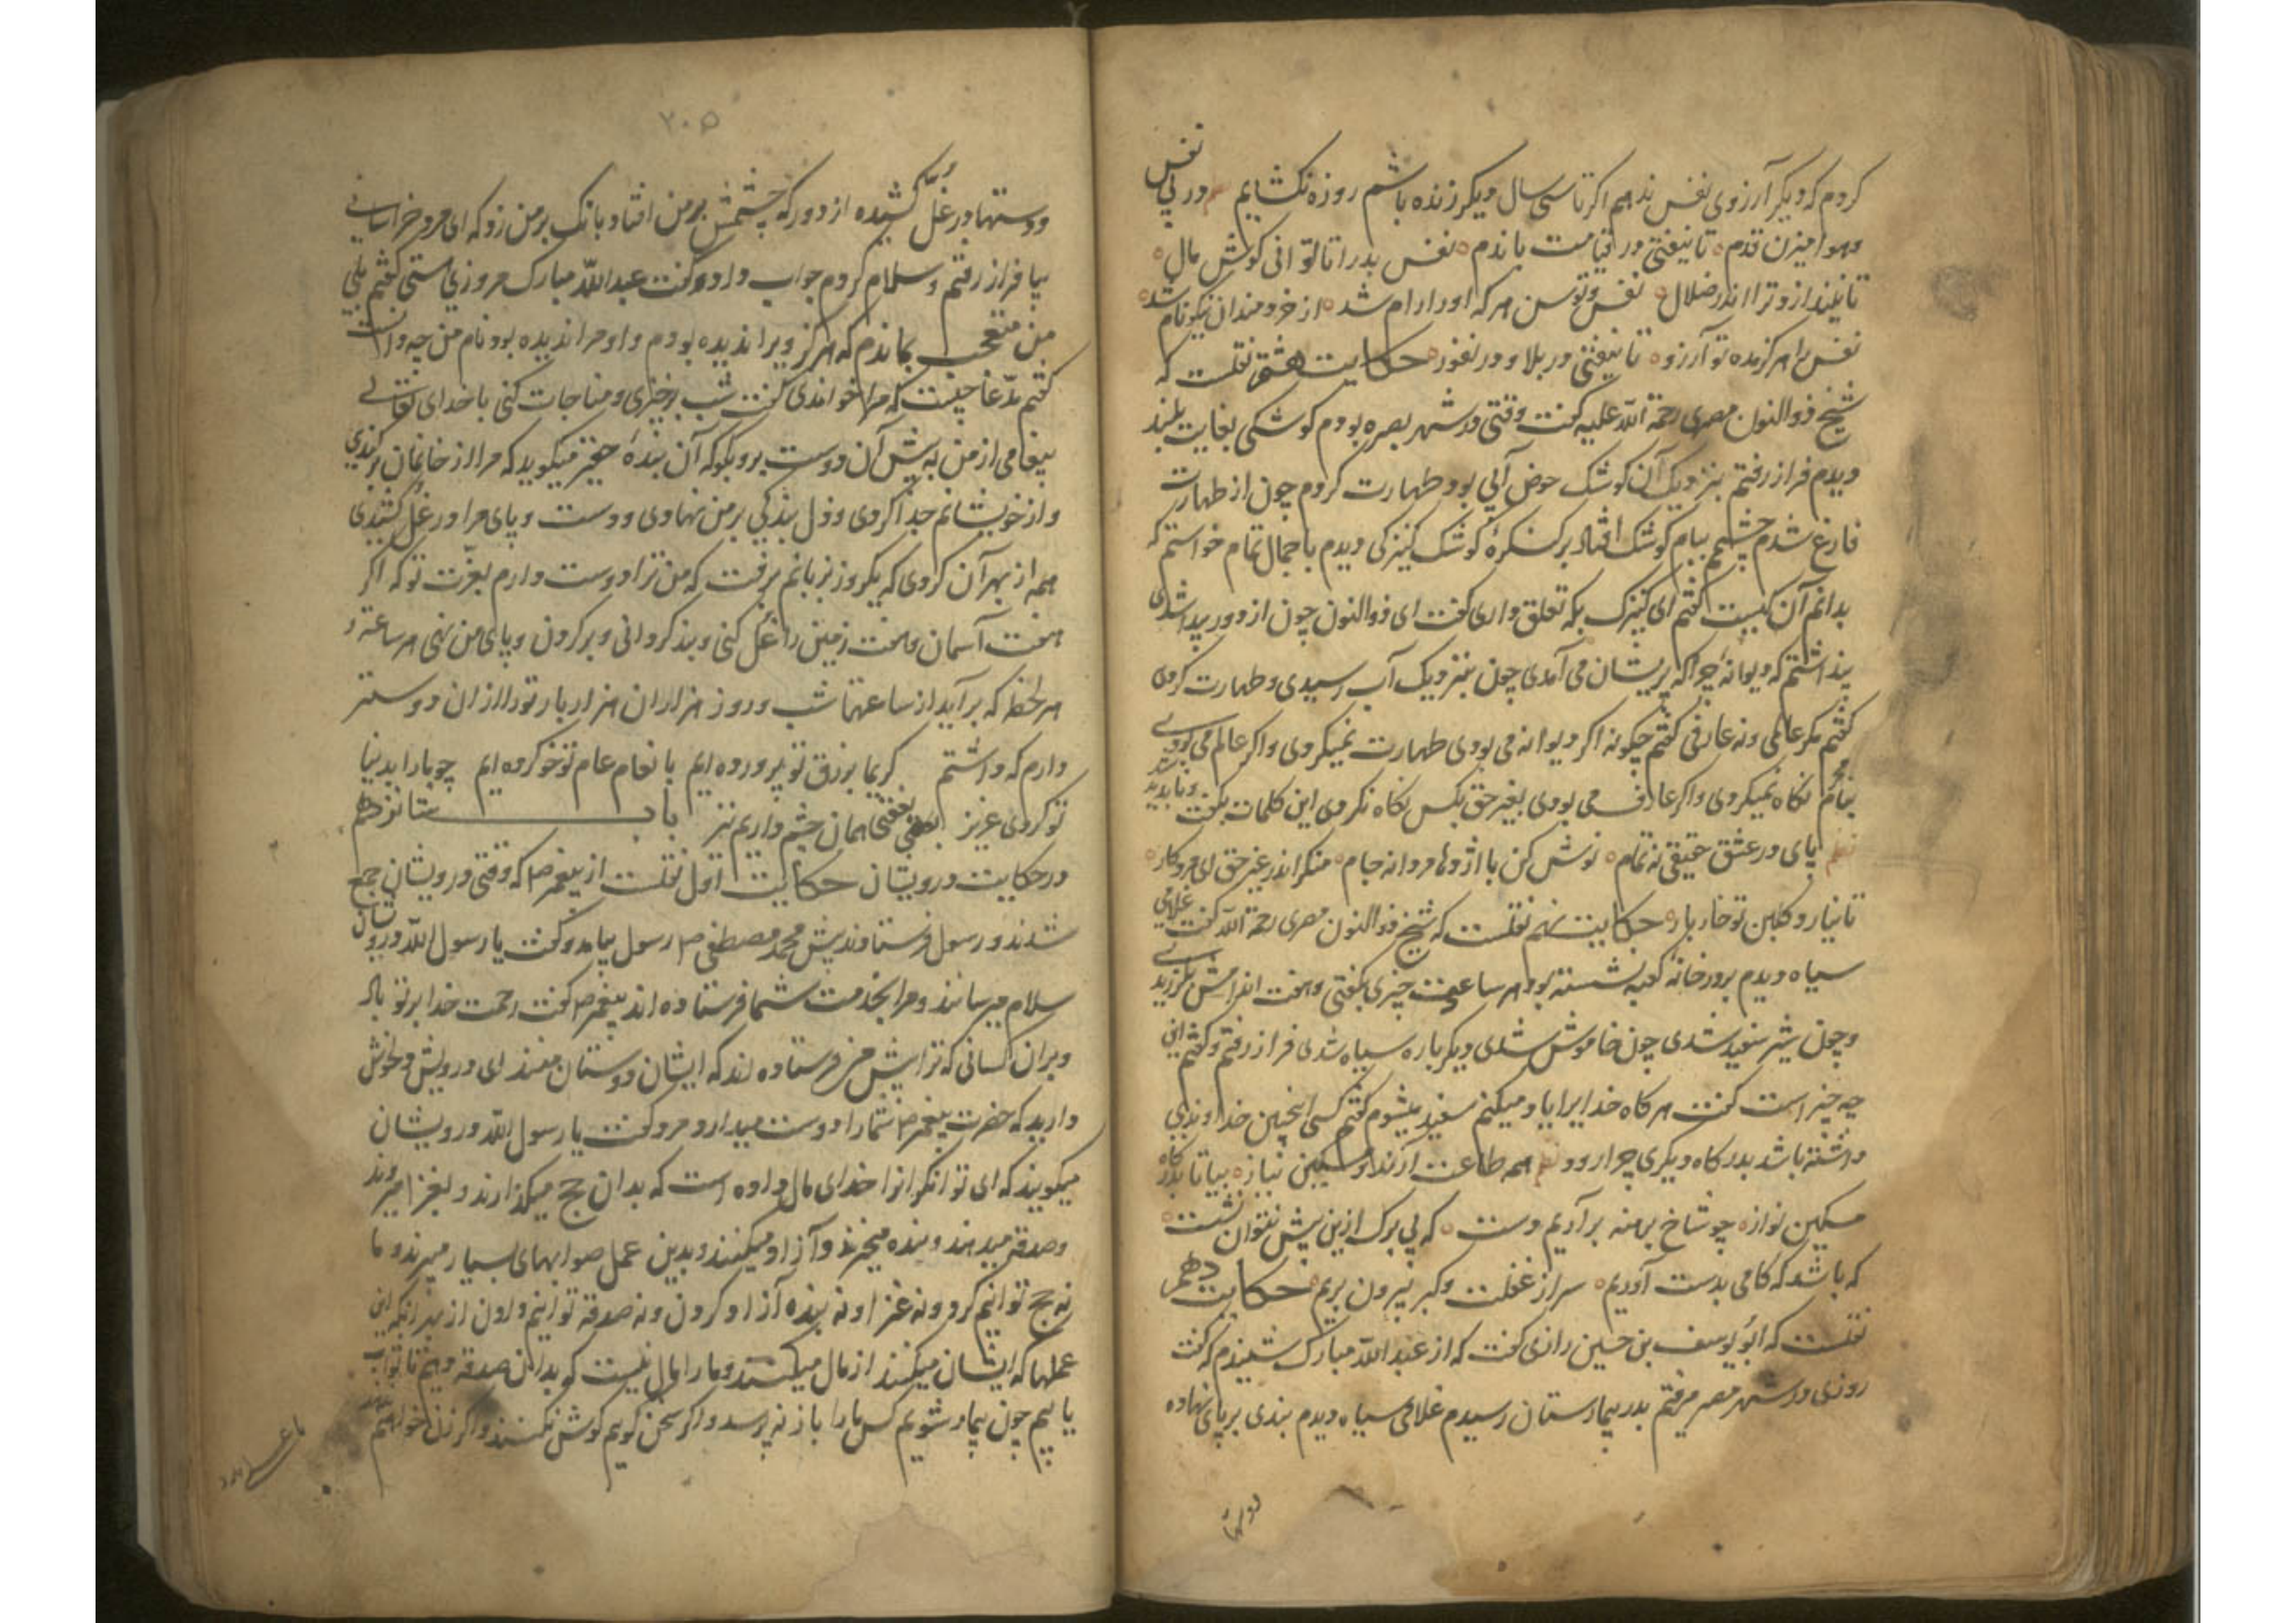 کردم که دیگر آرزوی نفس ندهم اکر تا سی سال دیکر زنده باشم روزه نکشایم در پی نفس
و هوا میزن قدم تا نیفتی در قیامت با ندم نفس بد را تا توانی کوش مال
تا نیندازد ترا اندر ضلال نفس و توسن هر که او را رام شد از خردمندان نیکونام شد
نفس را هرکز مده تو آرزو تا نیفتی در بلا و در حکایت هشتم نقلست که
شیخ ذوالنون مصری رحمة الله علیه کفت وقتی در شهر بصره بودم کوشکی بغایت بلند
دیدم فراز رفتم بنزدیک آن کوشک حوض آبی بود طهارت کردم چون از طهارت
فارغ شدم چشمم ببام کوشک افتاد بر کنکرهٔ کوشک کنیزکی دیدم با جمال تمام خواستم که
بدانم آن کیست کفتم ای کنیزک بکه تعلق داری کفت ای ذوالنون چون از دور پیدا شدی
پنداشتم که دیوانهٔ چرا که پریشان می آمدی چون بنزدیک آب رسیدی و طهارت کردی
کفتم مکر عالمی و نه عارفی کفتم چکونه اکر دیوانه می بودی طهارت نمیکردی و اکر عالم می بودی
بنامحرم نکاه نمیکردی و اکر عارف می بودی بغیر حق بکس نکاه نکردی این کلمات بکفت و ناپدید شد
نظم پای در عشق حقیقی نه تمام نوش کن با اژدها مردانه جام منکر اندر غیر حق ای مرد کار
تا نیارد کلبن تو خار بار حکایت نهم نقلست که شیخ ذوالنون مصری رحمة الله کفت غلامی
سیاه دیدم بر در خانهٔ کعبه نشسته بود هر ساعت چیزی بکفتی و هفت اندامش بلرزیدی
و چون شیر سفید شدی چون خاموش شدی دیکر باره سیاه شدی فراز رفتم و کفتم این
چه چیز است کفت هر کاه خدایرا یاد میکنم سفید میشوم کفتم کسی اینچنین خداوندی
داشته باشد بدرکاه دیکری چرا رود نظم همه طاعت آرند و مسکین نیاز بیا تا بدرکاه
مسکین نواز چو شاخ برهنه برآریم دست که بی برک ازین بیش نتوان نشست
که باشد که کامی بدست آوریم سر از غفلت و کبر بیرون بریم حکایت دهم
نقلست که ابو یوسف بن حسین رازی کفت که از عبدالله مبارک شنیدم که کفت
روزی در شهر مصر میرفتم بدر بیمارستان رسیدم غلامی سیاه دیدم بندی بر پای نهاده
دو دستها
۷۰۵
و دستها در غُلّ کشیده از دور که چشمش بر من افتاد بانک بر من زد که ای مرد خراسانی
بیا فراز رفتم و سلام کردم جواب داد و کفت عبدالله مبارک مروزی هستی کفتم بلی
من متعجب بماندم که هرکز ویرا ندیده بودم و او مرا ندیده بود نام من چه دانست
کفتم مدّعا چیست که مرا خواندی کفت شب برخیزی و مناجات کنی با خدای تعالی
پیغامی از من به پیش آن دوست برو بکو که آن بندهٔ حقیر میکوید که مرا از خانمان برکندی
و از خویشانم جدا کردی و ذل بندکی بر من نهادی و دست و پای مرا در غُل کشیدی
همه از بهر آن کردی که یکروز بزبانم برفت که من ترا دوست دارم بعزّت تو که اکر
هفت آسمان و هفت زمین را غُل کنی و بند کردانی و بر کردن و پای من نهی هر ساعت و
هر لحظه که برآید از ساعتها شب و روز هزاران هزار بار تو را از آن دوستر
دارم که داشتم کریما برزق تو پرورده ایم بانعام عام تو خو کرده ایم چو ما را بدنیا
تو کردی عزیز بعقبی همان چشم داریم نیز باب شانزدهم
در حکایت درویشان حکایت اول نقلست از پیغمبر ص که وقتی درویشان جمع
شدند و رسول فرستادند پیش محمد مصطفی ص رسول بیامد و کفت یا رسول الله درویشان
سلام میرسانند و مرا بخدمت شما فرستاده اند پیغمبر ص کفت رحمت خدا بر تو باد
و بر آن کسانی که ترا پیش من فرستاده اند که ایشان دوستان منند ای درویش دلخوش
دارید که حضرت پیغمبر ص شما را دوست میدارد مرد کفت یا رسول الله درویشان
میکویند که ای توانکرانرا خدای مال داده است که بدان حج میکذارند و بغزا میروند
و صدقه میدهند و بنده میخرند و آزاد میکنند و بدین عمل صوابهای بسیار میبرند و ما
نه حج توانیم کرد و نه غزا و نه بنده آزاد کردن و نه صدقه توانیم دادن از بهر آنکه این
عملها که ایشان میکنند از مال میکنند و ما را مال نیست که بدان صدقه دهیم تا ثواب
یابیم چون بیمار شویم کس ما را باز نپرسد و اکر سخن کوییم کوش نکنند و اکر زن خواهیم